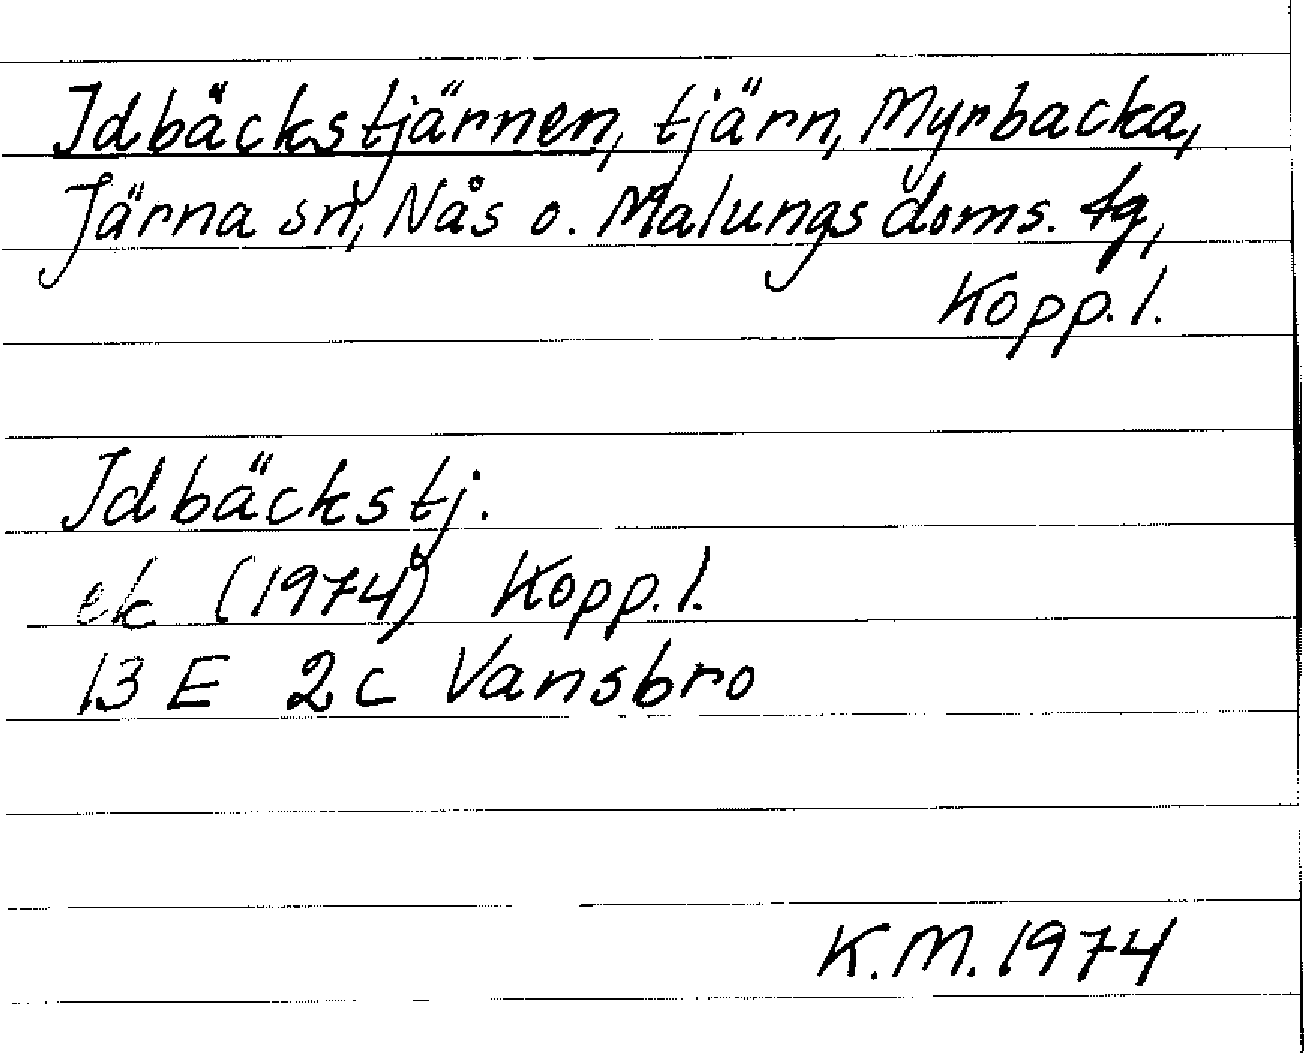 Idbäckstjärnen, tjärn, Myrbacka,
Järna sn, Nås o. Malungs doms. tg,
Kopp. l.
Idbäckstj.
ek (1974) Kopp. l.
13 E 2c Vansbro
K.M. 1974